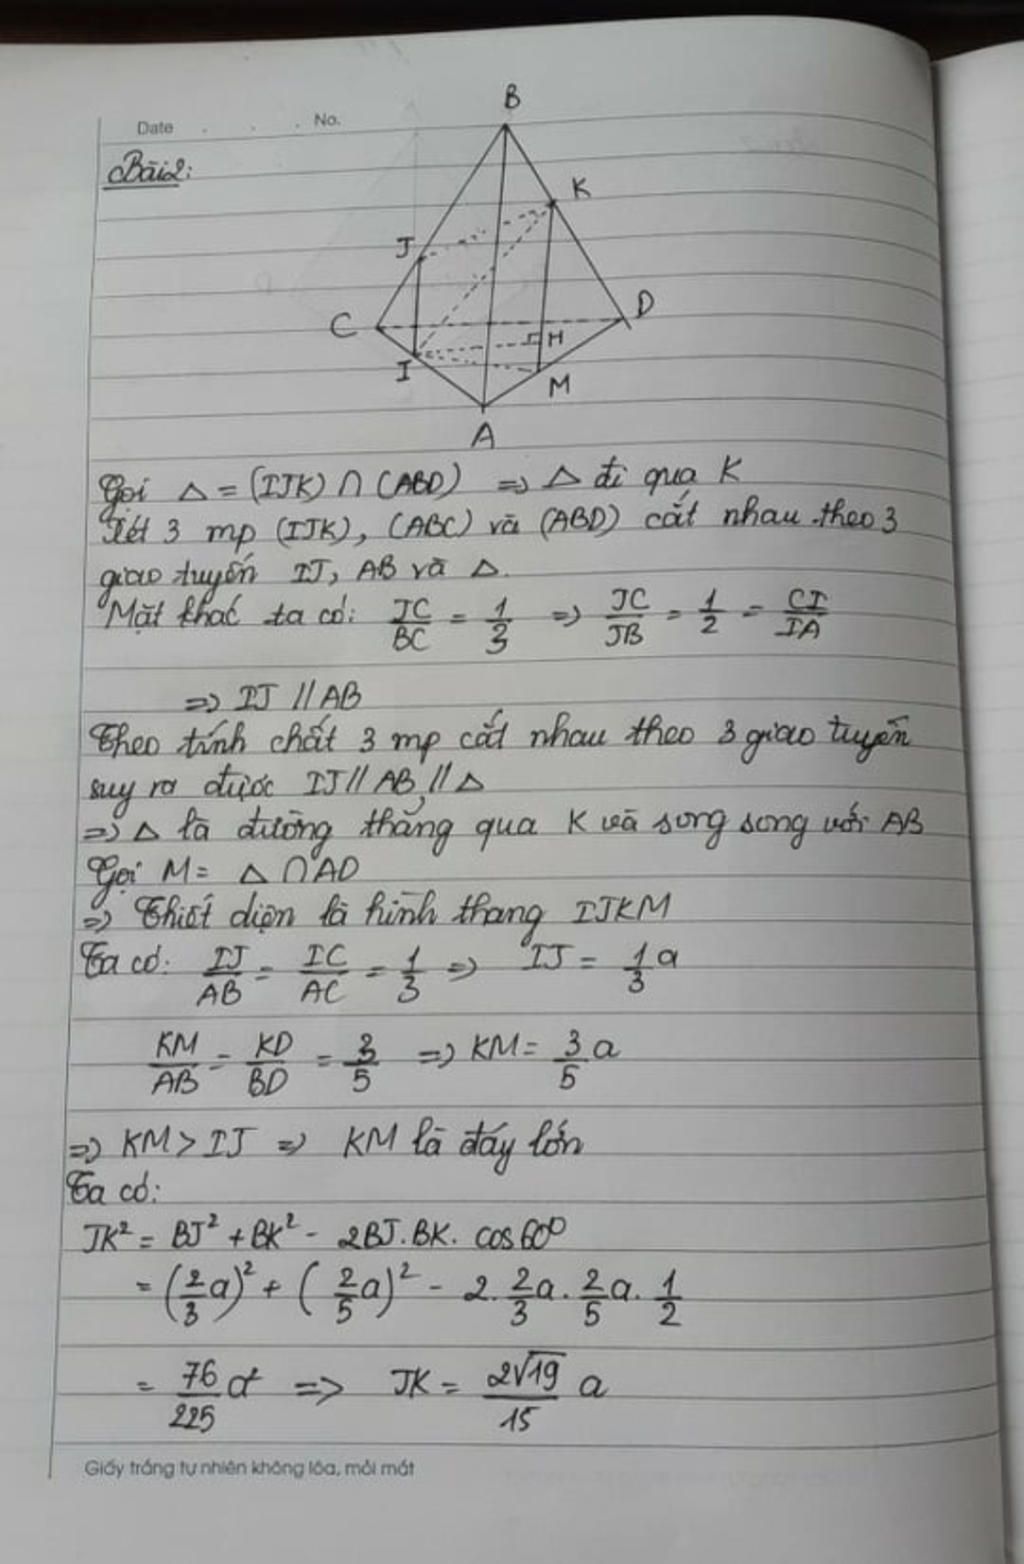 Date . . . No.
Bài 2:
B
K
J
C
D
H
I
M
A
Gọi Δ = (IJK) ∩ (ABD) => Δ đi qua K
Xét 3 mp (IJK), (ABC) và (ABD) cắt nhau theo 3
giao tuyến IJ, AB và Δ.
Mặt khác ta có: JC/BC = 1/3 => JC/JB = 1/2 = CI/IA
=> IJ // AB
Theo tính chất 3 mp cắt nhau theo 3 giao tuyến
suy ra được IJ // AB // Δ
=> Δ là đường thẳng qua K và song song với AB
Gọi M = Δ ∩ AD
=> Thiết diện là hình thang IJKM
Ta có: IJ/AB = IC/AC = 1/3 => IJ = 1/3 a
KM/AB = KD/BD = 3/5 => KM = 3/5 a
=> KM > IJ => KM là đáy lớn
Ta có:
JK² = BJ² + BK² - 2BJ.BK. cos60°
= (2/3 a)² + (2/5 a)² - 2. 2/3 a. 2/5 a. 1/2
= 76/225 a² => JK = 2√19/15 a
Giấy trắng tự nhiên không lóa, mỏi mắt